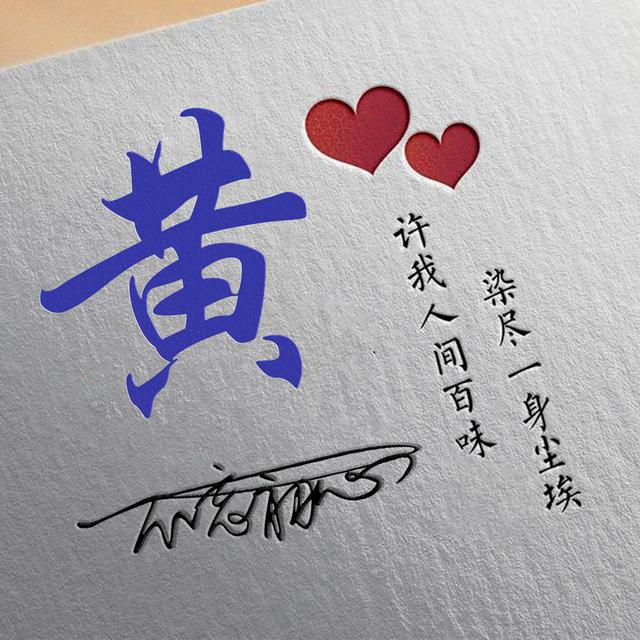 黄
许我人间百味
染尽一身尘埃